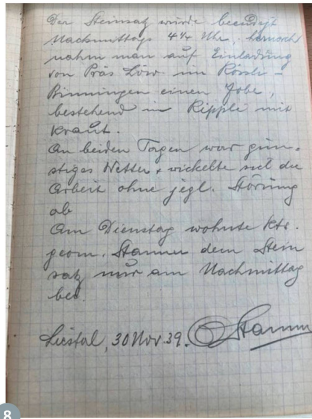 Der Steinsatz wurde beendigt
Nachmittags 4¼ Uhr.
nahm man auf Einladung
von Präs Löw im Rössli-
Binningen einen Zobe,
bestehend in Rippli mit
Kraut.
An beiden Tagen war gün-
stiges Wetter & wickelte sich die
Arbeit ohne jegl. Störung
ab
Am Dienstag wohnte Kts.
geom. Stamm dem Stein
satz nur am Nachmittag
bei.
Liestal, 30 Nov. 39. Stamm
8